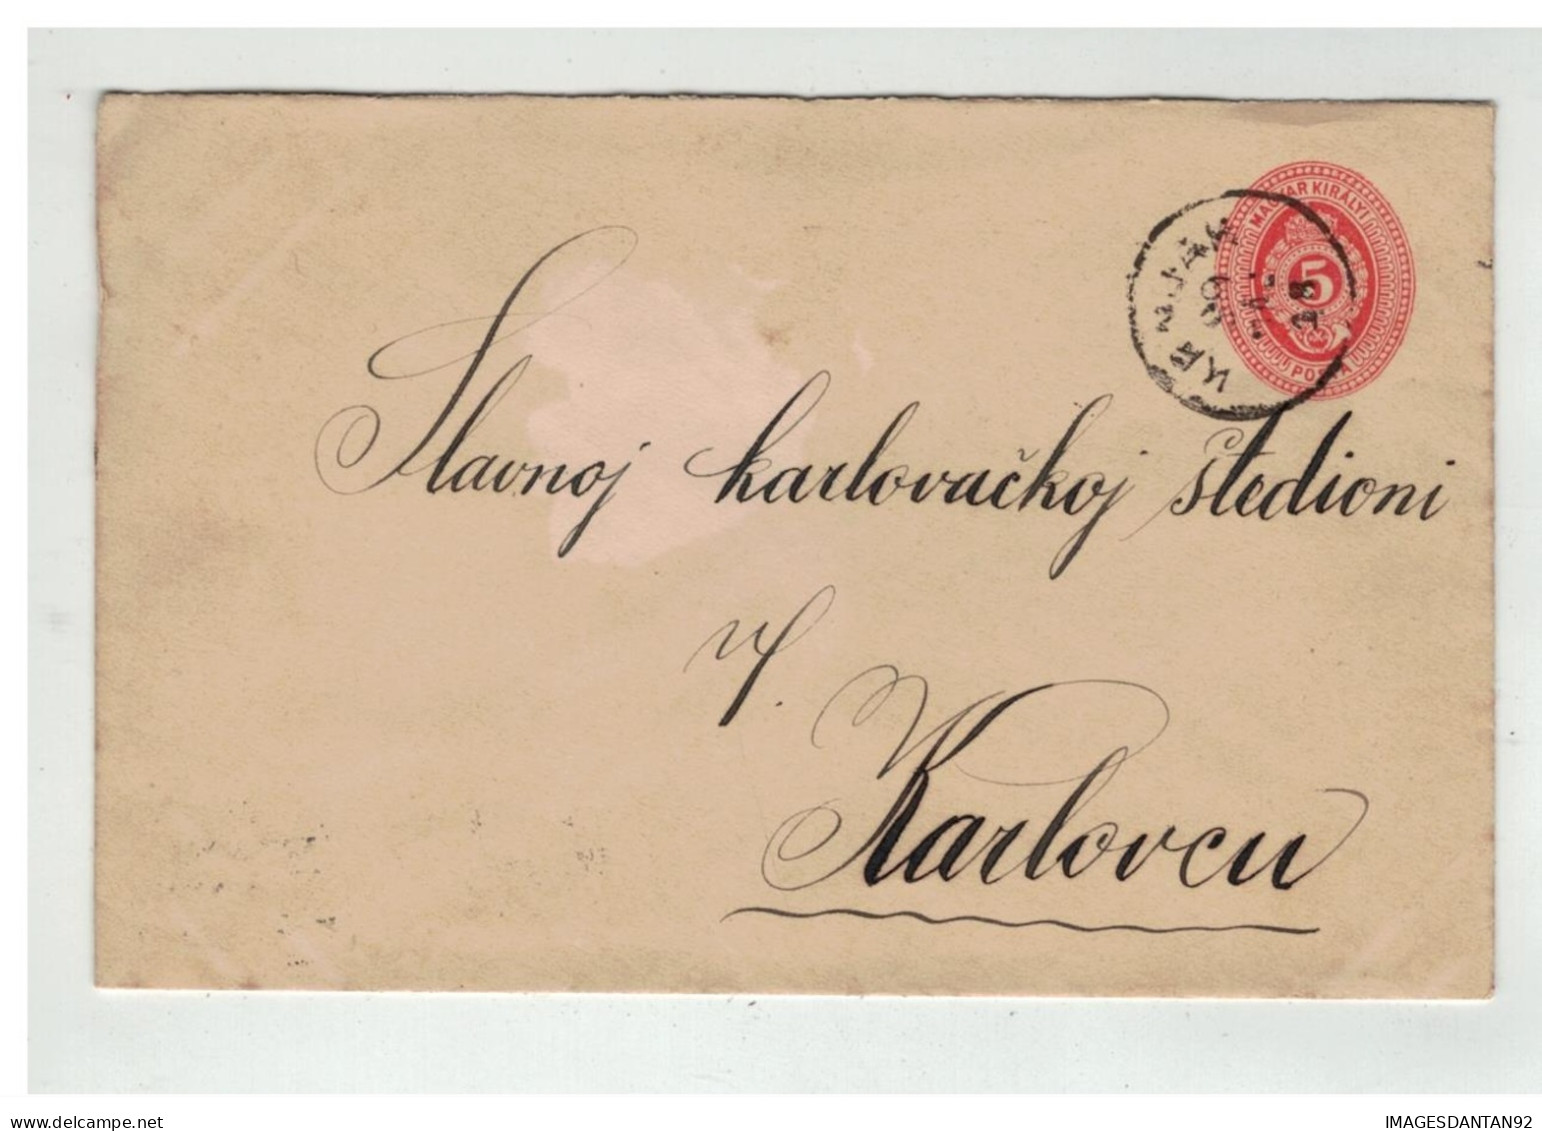 MAGYAR KIRÁLYI
5
POSTA
Slavnoj karlovačkoj štedioni
u
Karlovcu
delcampe.net
IMAGESDANTAN92